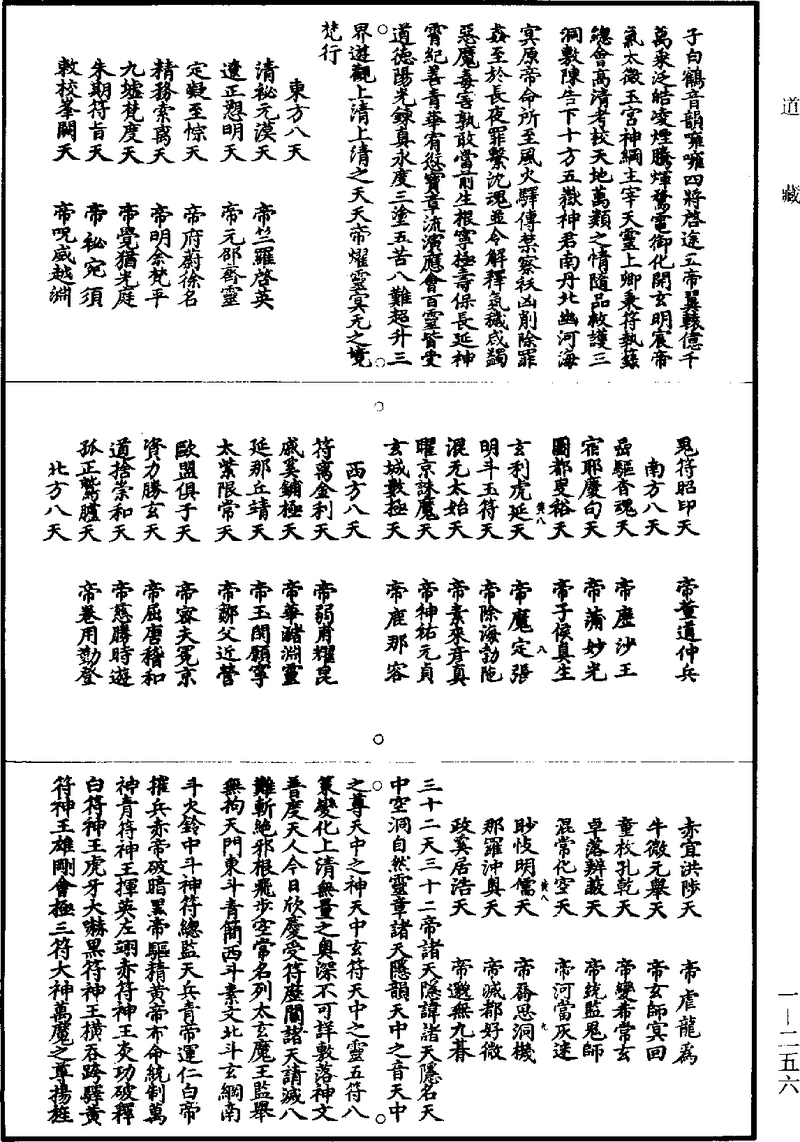 道藏
子白鶴音韻嗈嗈四將啓途五帝翼轅億千
萬乘泛皓凌煙騰輝驚電御化開玄明宸帝
氣太微玉宮神綱主宰天靈上卿秉符執籙
總會高清考校天地萬類之情隨品救護三
洞敷陳告下十方五嶽神君南丹北幽河海
冥原帝命所至風火驛傳禁察袄凶削除罪
姦至於長夜罪繫沈魂並令解釋氣穢咸蠲
惡魔毒害孰敢當前生根寧極壽保長延神
霄紀善青華宥愆寶章流演應會百靈皆受
道德陽光鍊真永度三塗五苦八難超升三
界遊觀上清上清之天天帝燿靈冥无之境
梵行
東方八天
清秘元漠天 帝竺羅啓英
遼正懇明天 帝元邵齋靈
定凝至悰天 帝府蔚徐名
精務索离天 帝明余梵平
九墟梵度天 帝覺猶光庭
朱期符旨天 帝祕宛須
敕校峯闕天 帝呪威越淵
鬼符昭印天 帝董道仲兵
南方八天
嵒驅杳魂天 帝塵沙王
宿耶慶句天 帝蒲妙光
圖都叟裕天 帝子候真生
玄利虎延天 帝魔定張
黄八 八
明斗玉符天 帝除海勃陁
混元太始天 帝素來彦真
曜京誅魔天 帝神祐元貞
玄城數極天 帝鹿那容
西方八天
符离金利天 帝弱甫耀昆
戚奚鋪極天 帝華豬淵靈
延那丘靖天 帝玉閔願寧
太紫限常天 帝鄒父近營
歐盟俱子天 帝容夫冕京
資力勝玄天 帝屈唐稽和
道捨崇和天 帝慈騰時遊
孤正鷲臚天 帝卷用勤登
北方八天
赤宜洪陟天 帝虐龍為
牛微元舉天 帝玄師冥回
童枚孔乾天 帝變希常玄
卓落辨蔽天 帝統監鬼師
混常化空天 帝河當灰迷
眇忮明儒天 帝喬思洞機
黄八 九
那羅沖奥天 帝滅都好微
政奚居浩天 帝邀無九暮
三十二天三十二帝諸天隱諱諸天隱名天
中空洞自然靈章諸天隱韻天中之音天中
之尊天中之神天中玄符天中之靈五符八
篆變化上清無量之奥深不可詳敷落神文
普度天人今日欣慶受符歷關諸天請滅八
難斬絶邪根飛步空常名列太玄魔王監舉
無拘天門東斗青簡西斗素文北斗玄綱南
斗火鈴中斗神符總監天兵青帝運仁白帝
摧兵赤帝破暗黑帝驅精黄帝布命統制萬
神青符神王揮英左翊赤符神王炎功破釋
白符神王虎牙大嚇黑符神王横吞跨驛黄
符神王雄剛會極三符大神萬魔之尊揚旌
一—二五六